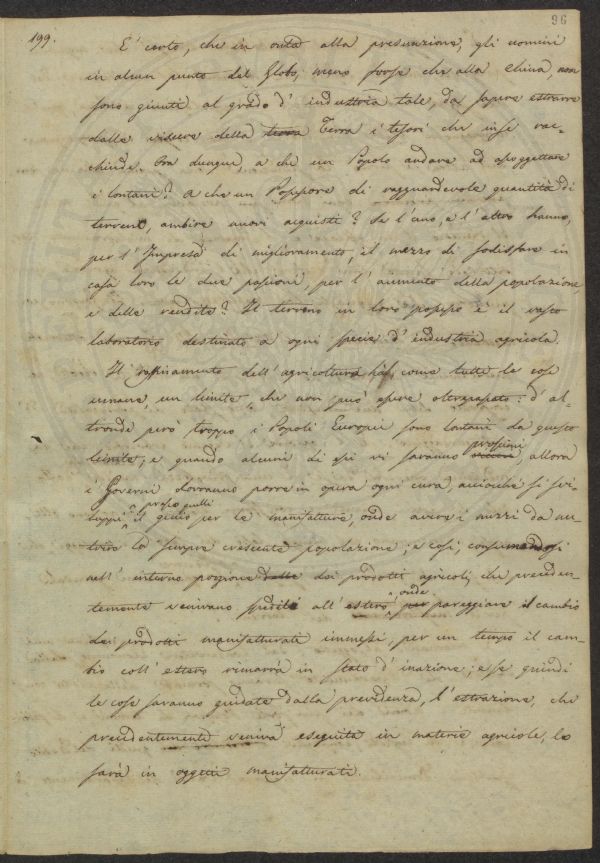 96
199.
E' certo, che in onta alla presunzione, gli uomini
in alcun punto del Globo, meno forse che alla China, non
sono giunti al grado d' industria tale, da sapere estrarre
dalle viscere della terra Terra i tesori che in se rac-
chiude. Ora dunque, a che un Popolo andare ad assoggettare
i lontani? A che un Possessore di ragguardevole quantità di
terreni, ambire nuovi acquisti? Se l'uno, e l'altro hanno,
per l'Impresa di miglioramento, il mezzo di sodisfare in
casa loro le due passioni, per l'aumento della popolazione,
e delle rendite? Il terreno in loro possesso è il vasto
laboratorio destinato a ogni specie d' industria agricola.
Il raffinamento dell' agricoltura ha, come tutte le cose
umane, un limite, che non può essere oltrepassato: d' al-
tronde però troppo i Popoli Europei sono lontani da questo
limite; e quando alcuni di essi vi saranno prossimi, allora
i Governi dovranno porre in opera ogni cura, acciocchè si svi-
luppi presso quelli il genio per le manifatture, onde avere i mezzi da nu-
trire la sempre crescente popolazione; e così, consumandosi
nell' interno porzione delle dei prodotti agricoli, che preceden-
temente venivano spediti all' estero, onde per pareggiare il cambio
dei prodotti manifatturati immessi, per un tempo il cam-
bio coll' estero rimarrà in stato d' inazione; e se quindi
le cose saranno guidate dalla previdenza, l' estrazione, che
precedentemente veniva eseguita in materie agricole, lo
sarà in oggetti manifatturati.